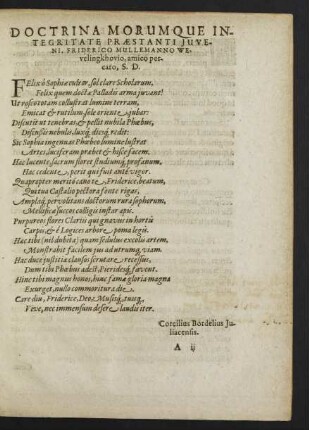 DOCTRINA MORUMQUE IN-
TEGRITATE PRÆSTANTI JUVE-
NI, FRIDERICO MULLEMANNO WE-
velingkhovio, amico per-
caro, S. D.
FElix ô Sophiæ cultor, sol clare Scholarum,
Felix quem docta Palladis arma juvant!
Ut roseo totam collustrat lumine terram,
Emicat & rutilum sole oriente jubar:
Discutit ut tenebras, & pellit nubila Phœbus,
Discussis nebulis luxq; diesq; redit:
Sic Sophia ingenuas Phœbeo lumine lustrat
Artes, luciferam præbet & hisce facem.
Hac lucente, sacrum floret studiumq; profanum,
Hac cedente, perit qui fuit ante vigor.
Quapropter merito canere, Friderice, beatum,
Qui tua Castalio pectora fonte rigas,
Ampláq; pervolitans doctorum rura sophorum,
Mellifica succos colligis instar apis.
Purpureos flores Clarii qui gnavus in hortis
Carpis, & è Logices arbore poma legis.
Hac tibi (nil dubita) quam sedulus excolis artem,
Monstrabit facilem jus ad utrumq; viam.
Hac duce justitiæ clausos scrutare recessus,
Dum tibi Phœbus adest, Pieridesq; favent.
Hinc tibi magnus honos, hinc fama & gloria magna
Exurget, nullo commoritura die.
Care diu, Friderice, Deo, Musisq;, tuisq;
Vive, nec immensum desere laudis iter.
Corcilius Bordelius Ju-
liacensis.
A ij